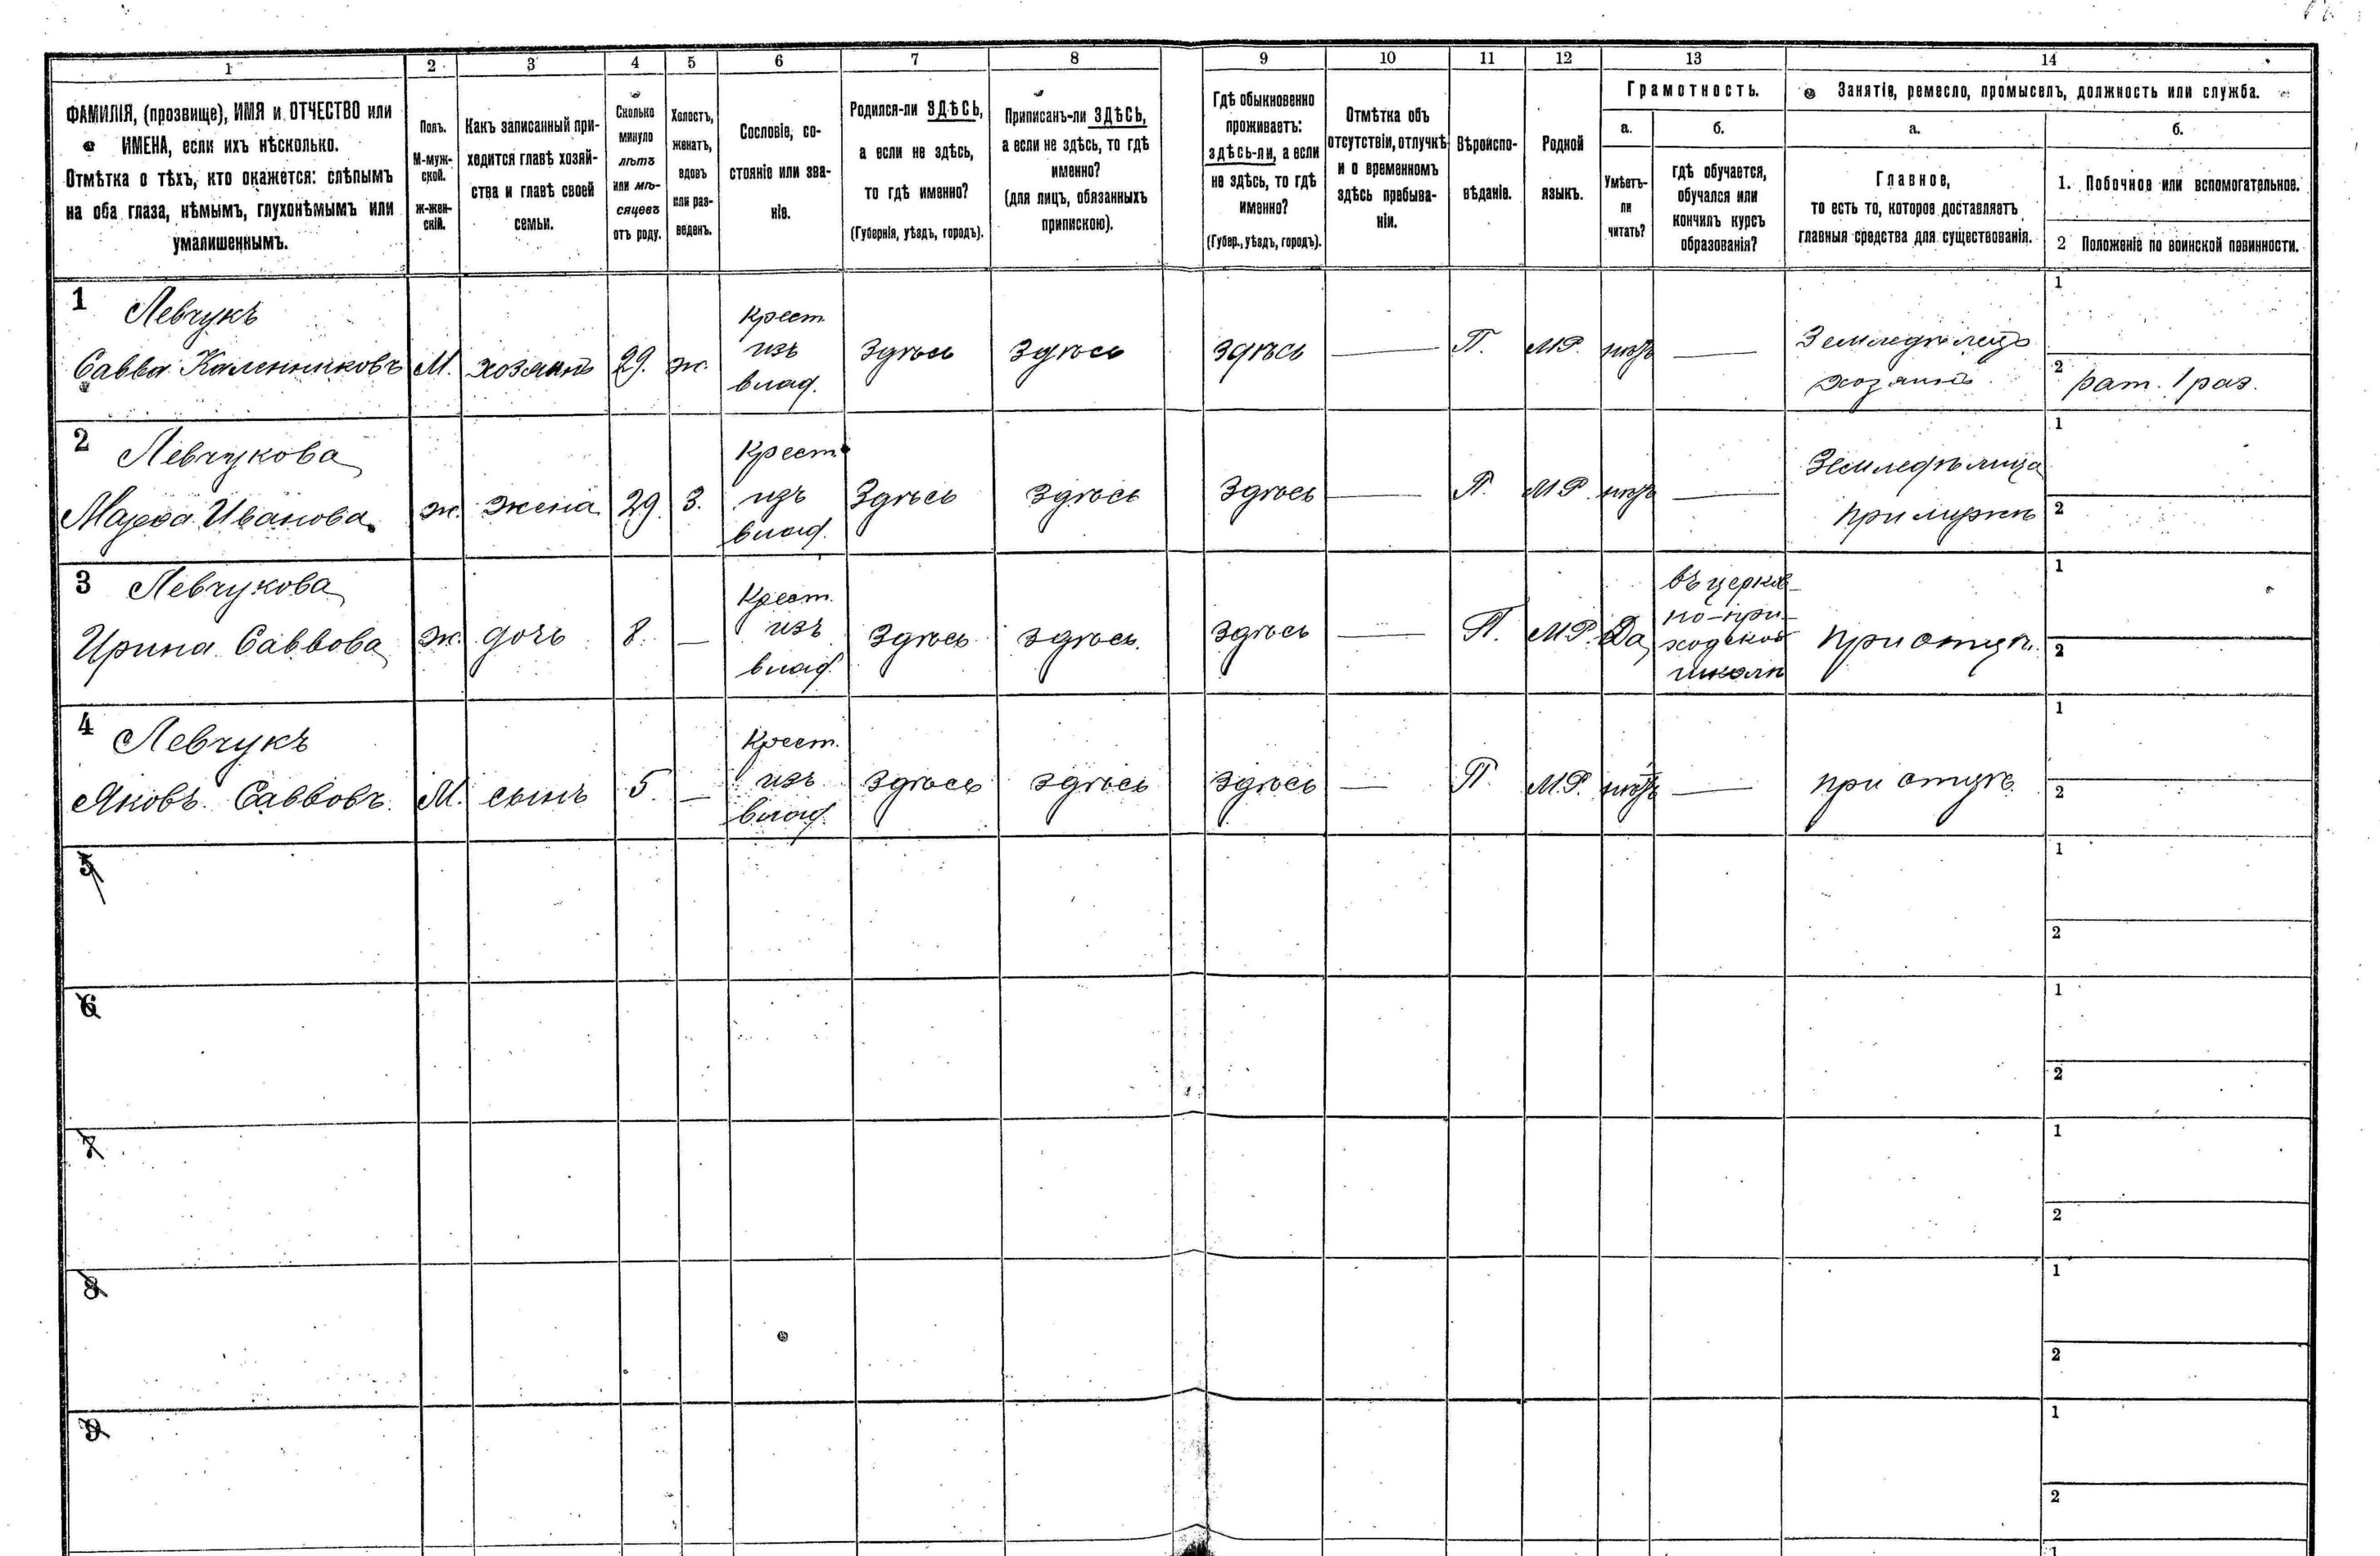 1 2 3 4 5 6 7 8 9 10 11 12 13 14
ФАМИЛІЯ, (прозвище), ИМЯ и ОТЧЕСТВО или
ИМЕНА, если ихъ нѣсколько.
Отмѣтка о тѣхъ, кто окажется: слѣпымъ
на оба глаза, нѣмымъ, глухонѣмымъ или
умалишеннымъ.
Полъ.
М-муж-
ской.
ж-жен-
скій.
Какъ записанный при-
ходится главѣ хозяй-
ства и главѣ своей
семьи.
Сколько
минуло
лѣтъ
или мѣ-
сяцевъ
отъ роду.
Холостъ,
женатъ,
вдовъ
или раз-
веденъ.
Сословіе, со-
стояніе или зва-
ніе.
Родился-ли ЗДѢСЬ,
а если не здѣсь,
то гдѣ именно?
(Губернія, уѣздъ, городъ).
Приписанъ-ли ЗДѢСЬ,
а если не здѣсь, то гдѣ
именно?
(для лицъ, обязанныхъ
припискою).
Гдѣ обыкновенно
проживаетъ:
здѣсь-ли, а если
не здѣсь, то гдѣ
именно?
(Губер., уѣздъ, городъ).
Отмѣтка объ
отсутствіи, отлучкѣ
и о временномъ
здѣсь пребыва-
ніи.
Вѣроиспо-
вѣданіе.
Родной
языкъ.
Грамотность.
а.
Умѣетъ-
ли
читать?
б.
гдѣ обучается,
обучался или
кончилъ курсъ
образованія?
Занятіе, ремесло, промыселъ, должность или служба.
а.
Главное,
то есть то, которое доставляетъ
главныя средства для существованія.
б.
1. Побочное или вспомогательное.
2 Положеніе по воинской повинности.
1 Левчукъ
Савва Каленниковъ
М.
хозяинъ
29.
ж.
Крест.
изъ
влад.
Здѣсь
Здѣсь
здѣсь
—
П.
М.Р.
нѣтъ
—
Земледѣлецъ
хозяинъ
1
2
рат. 1 раз.
2 Левчукова
Марѳа Иванова
ж.
жена
29.
З.
Крест.
изъ
влад.
Здѣсь
Здѣсь
Здѣсь
—
П.
М.Р.
нѣтъ
—
Земледѣлица
при мужѣ
1
2
3 Левчукова
Ирина Саввова
ж.
дочь
8.
—
Крест.
изъ
влад.
Здѣсь
здѣсь.
здѣсь
—
П.
М.Р.
Да
въ церков-
но-при-
ходской
школѣ
при отцѣ.
1
2
4 Левчукъ
Яковъ Саввовъ.
М.
сынъ
5.
—
Крест.
изъ
влад.
Здѣсь
здѣсь
здѣсь
—
П.
М.Р.
нѣтъ
—
при отцѣ.
1
2
5
1
2
6
1
2
7
1
2
8
1
2
9
1
2
1